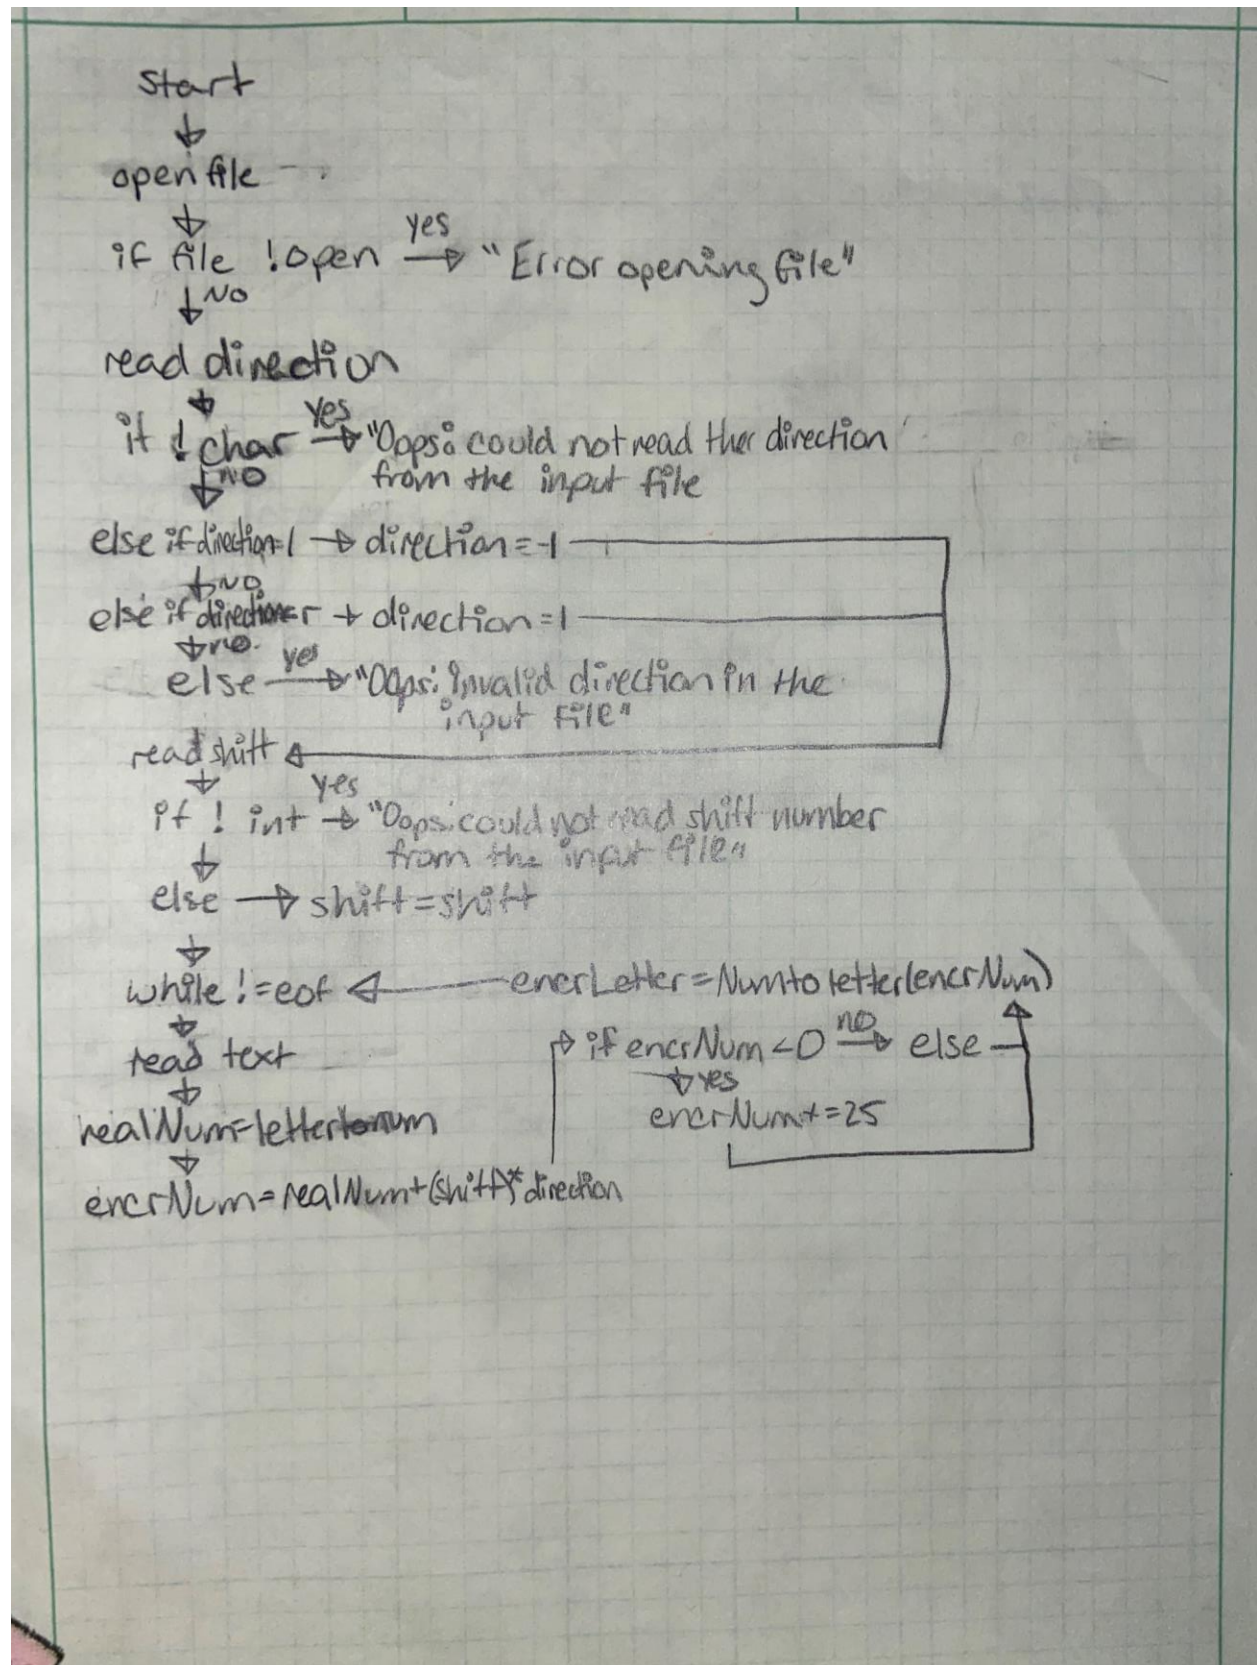 Start
open file
if file !open yes "Error opening file"
No
read direction
if !char yes "Oops: could not read ther direction
from the input file
NO
else if direction=l direction=-1
NO
else if direction=r direction=1
no.
else yes "Oops: invalid direction in the
input file"
read shift
if ! int yes "Oops: could not read shift number
from the input file"
else shift=shift
while !=eof encrLetter=Numtoletter(encrNum)
read text if encrNum<0 no else
yes
realNum=lettertonum encrNum+=25
encrNum=realNum+(shift)*direction